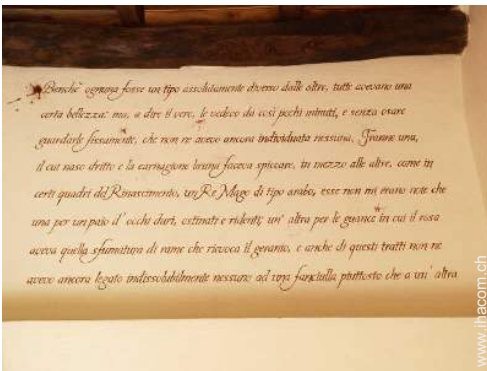 Benchè ognuna fosse un tipo assolutamente diverso dalle altre, tutte avevano una
certa bellezza: ma, a dire il vero, le vedevo da così pochi minuti, e senza osare
guardarle fissamente, che non ne avevo ancora individuata nessuna. Tranne una,
il cui naso dritto e la carnagione bruna faceva spiccare, in mezzo alle altre, come in
certi quadri del Rinascimento, un Re Mago di tipo arabo, esse non mi erano note che
una per un paio d'occhi duri, ostinati e ridenti; un'altra per le guance in cui il rosa
aveva quella sfumatura di rame che rievoca il geranio, e anche di questi tratti non ne
avevo ancora legato indissolubilmente nessuno ad una fanciulla piuttosto che a un'altra
www.ihacom.ch